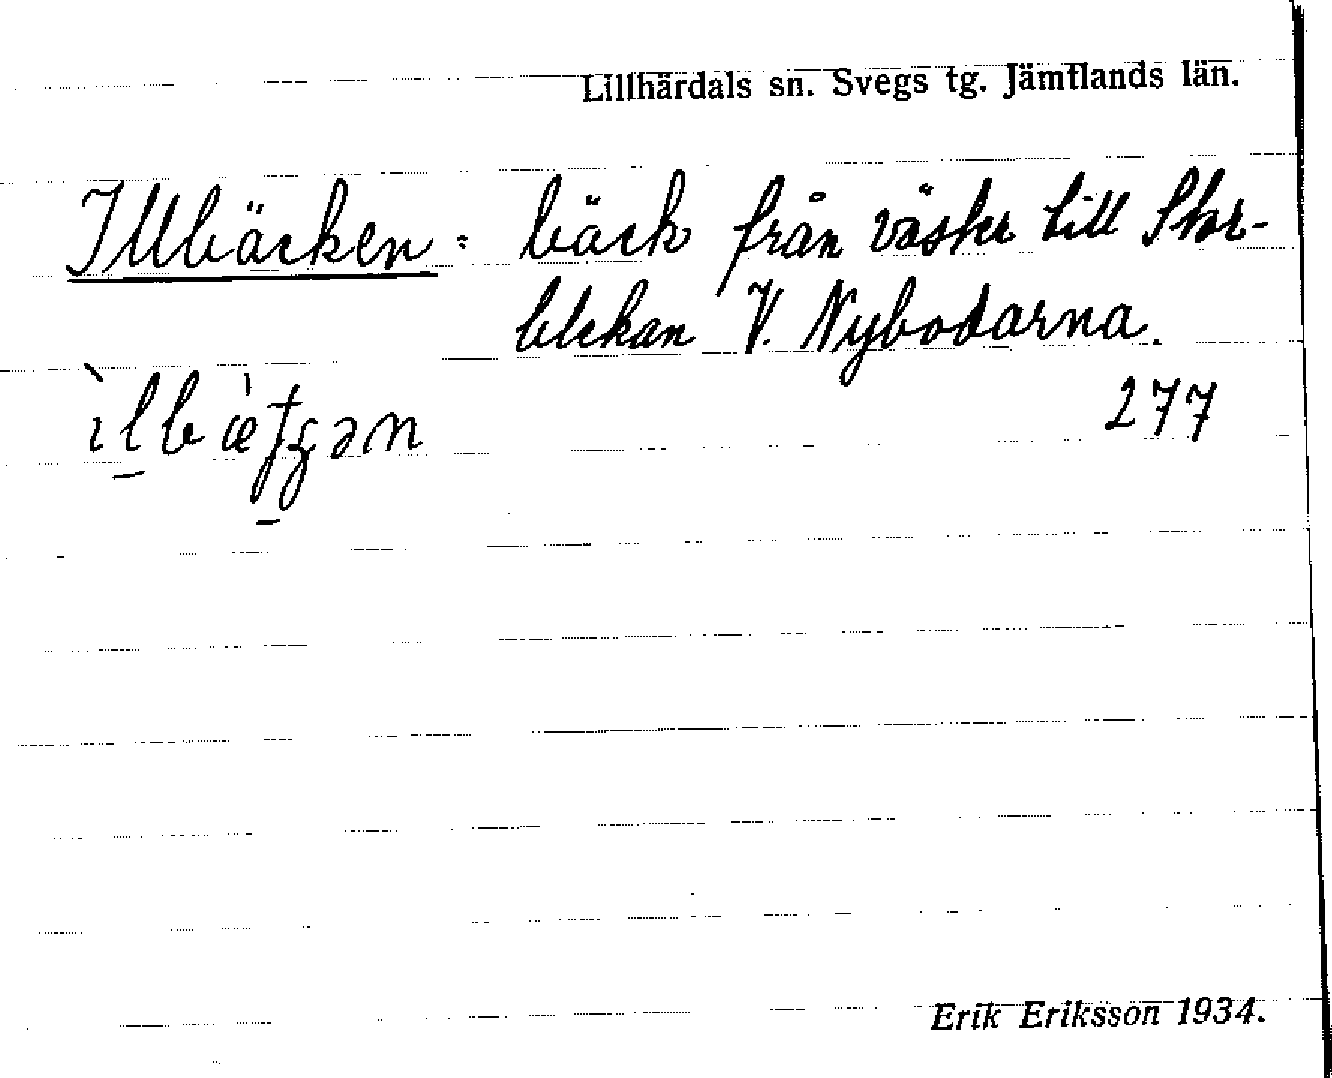 Lillhärdals sn. Svegs tg. Jämtlands län.
Illbäcken: bäck från väster till Stor-
blekan V. Nybodarna.
277
Erik Eriksson 1934.